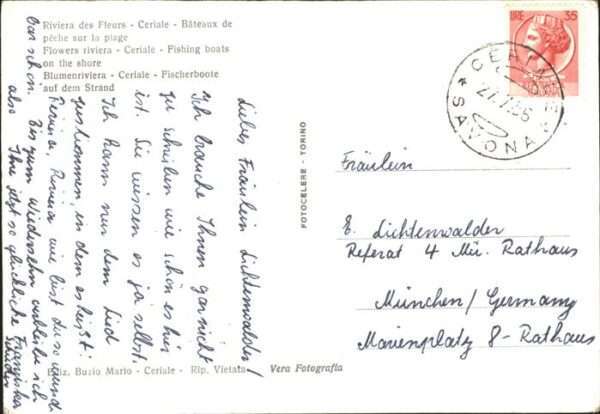 Riviera des Fleurs - Ceriale - Bâteaux de
pêche sur la plage
Flowers riviera - Ceriale - Fishing boats
on the shore
Blumenriviera - Ceriale - Fischerboote
auf dem Strand
LIRE 35
CERIALE
27.7.56
* SAVONA *
Liebes Fräulein Lichtenwalder!
Ich brauche Ihnen gar nicht
zu schreiben wie schön es hier
ist. Sie wissen es ja selbst.
Ich kann nur dem Lied
zustimmen, in dem es heißt:
Riviera, Riviera wie bist du so wunder-
bar schön. Bis zum Wiedersehn verbleibe ich
also Ihre jetzt so glückliche Franziska
FOTOCELERE - TORINO
Fräulein
E. Lichtenwalder
Referat 4 Mü. Rathaus
München/Germany
Marienplatz 8-Rathaus
Ediz. Buzio Mario - Ceriale - Rip. Vietata
Vera Fotografia